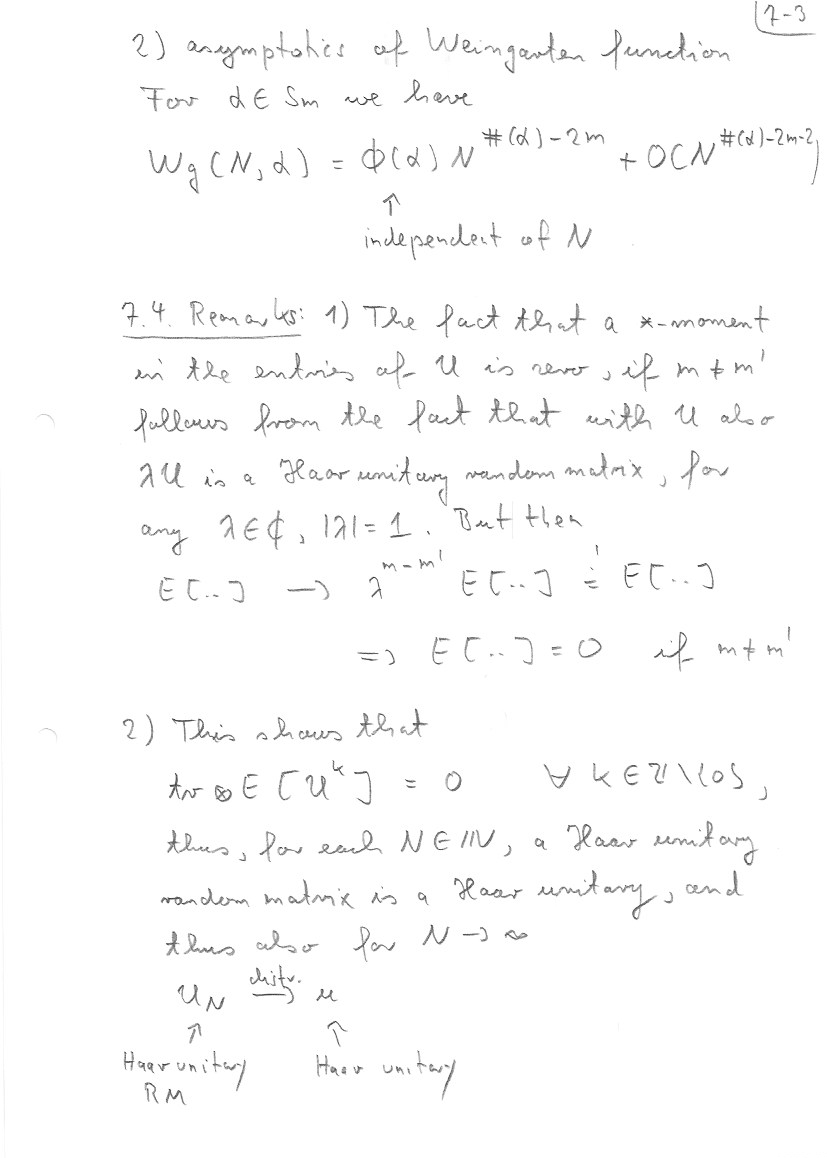 7-3
2) asymptotics of Weingarten function
For α ∈ Sm we have
Wg(N,α) = ϕ(α) N^{#(α)-2m} + O(N^{#(α)-2m-2})
↑
independent of N
7.4. Remarks: 1) The fact that a *-moment
in the entries of U is zero, if m ≠ m'
follows from the fact that with U also
λU is a Haar unitary random matrix, for
any λ ∈ ℂ, |λ| = 1. But then
E[..] → λ^{m-m'} E[..] =! E[..]
=> E[..] = 0 if m ≠ m'
2) This shows that
tr ⊗ E[U^k] = 0 ∀ k ∈ ℤ\{0},
thus, for each N ∈ ℕ, a Haar unitary
random matrix is a Haar unitary, and
thus also for N → ∞
U_N distr. → u
↑ ↑
Haar unitary Haar unitary
RM